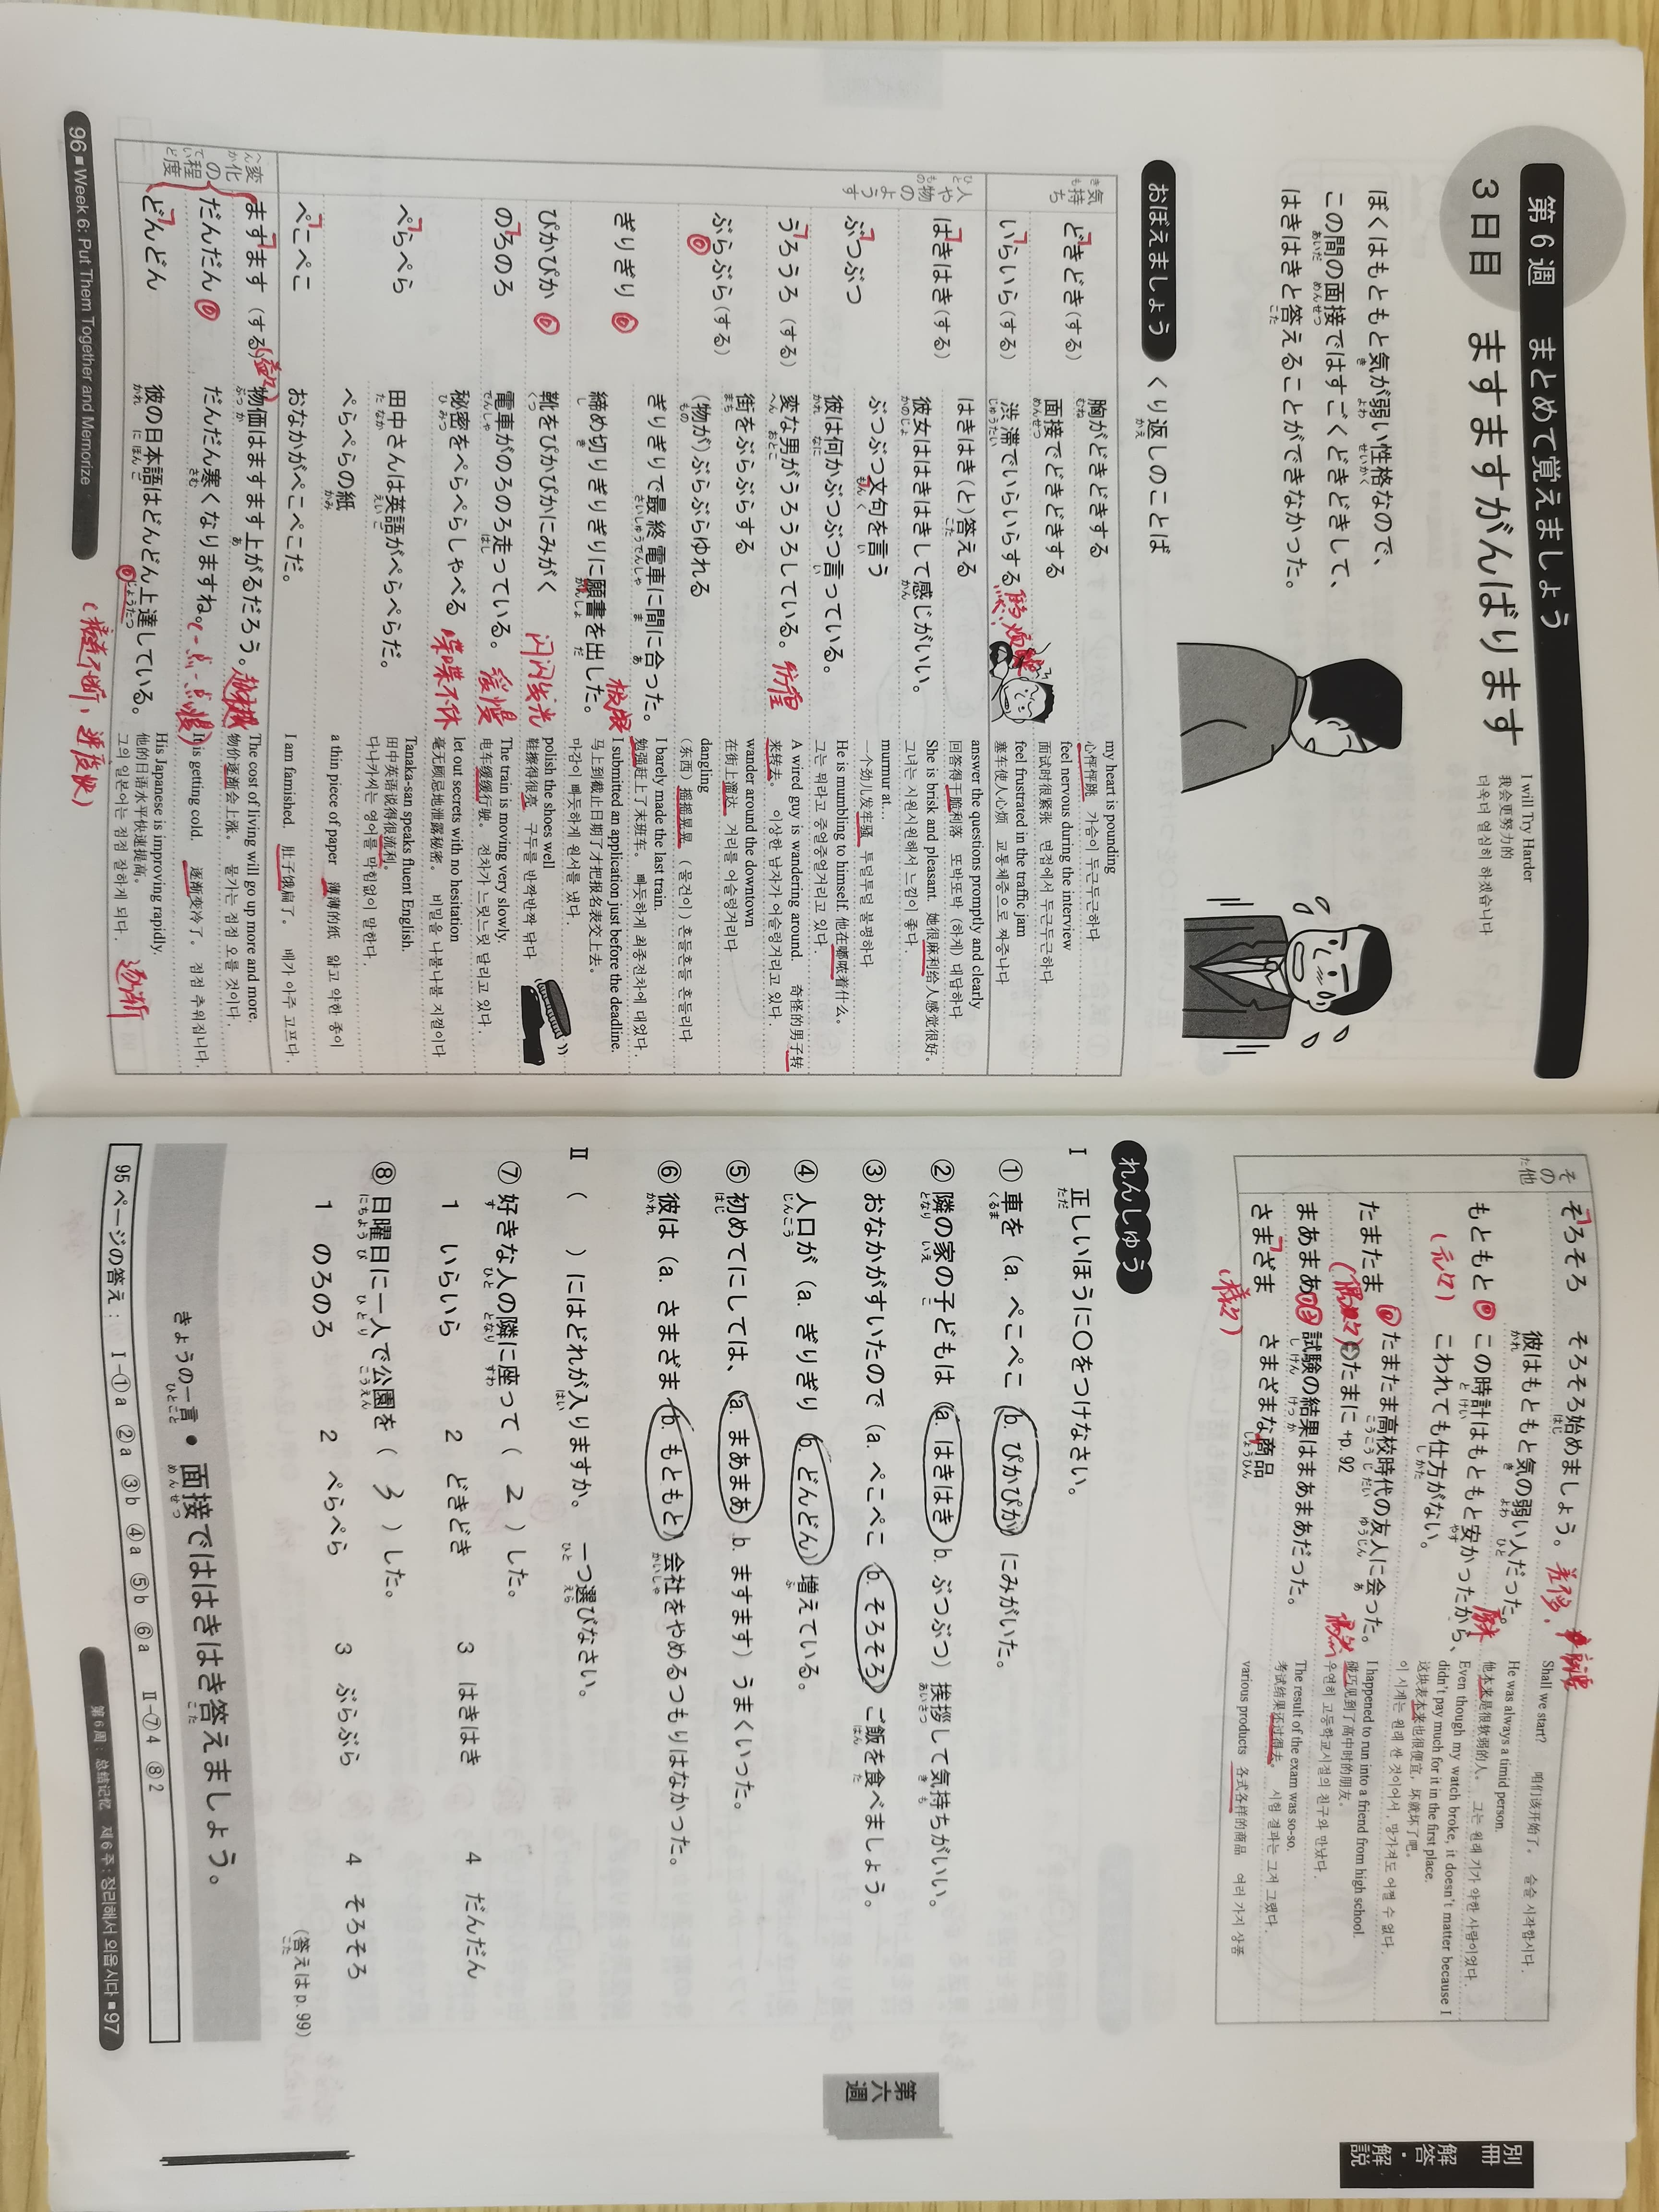 第6週 まとめて覚えましょう
3日目 ますますがんばります
I will Try Harder
我会更努力的
더욱더 열심히 하겠습니다
ぼくはもともと気が弱い性格なので、
この間の面接ではすごくどきどきして、
はきはきと答えることができなかった。
おぼえましょう くり返しのことば
気持ち
どきどき(する) 胸がどきどきする my heart is pounding
心怦怦跳 가슴이 두근두근하다
面接でどきどきする feel nervous during the interview
面试时很紧张 면접에서 두근두근하다
いらいら(する) 渋滞でいらいらする feel frustrated in the traffic jam
塞车使人心烦 교통체증으로 짜증나다
人や物のようす
はきはき(する) はきはき(と)答える answer the questions promptly and clearly
回答得干脆利落 또박또박(하게) 대답하다
彼女ははきはきして感じがいい。 She is brisk and pleasant. 她很麻利给人感觉很好。
그녀는 시원시원해서 느낌이 좋다.
ぶつぶつ ぶつぶつ文句を言う murmur at…
一个劲儿发牢骚 투덜투덜 불평하다
彼は何かぶつぶつ言っている。 He is mumbling to himself. 他在嘟哝着什么。
그는 뭐라고 중얼중얼거리고 있다.
うろうろ(する) 変な男がうろうろしている。 彷徨 A wired guy is wandering around. 奇怪的男子转
来转去。 이상한 남자가 어슬렁거리고 있다.
ぶらぶら(する) ⓪ 街をぶらぶらする wander around the downtown
在街上溜达 거리를 어슬렁거리다
(物が)ぶらぶらゆれる dangling
(东西)摇摇晃晃 (물건이) 흔들흔들 흔들리다
ぎりぎり ⓪ ぎりぎりで最終電車に間に合った。 I barely made the last train.
勉强赶上了末班车。 빠듯하게 최종전차에 대었다.
締め切りぎりぎりに願書を出した。 极限 I submitted an application just before the deadline.
马上到截止日期了才把报名表交上去。
마감이 빠듯하게 원서를 냈다.
ぴかぴか ⓪ 靴をぴかぴかにみがく 闪闪发光 polish the shoes well
鞋擦得很亮 구두를 반짝반짝 닦다
のろのろ 電車がのろのろ走っている。 缓慢 The train is moving very slowly.
电车缓缓行驶。 전차가 느릿느릿 달리고 있다.
ぺらぺら 秘密をぺらぺらしゃべる 喋喋不休 let out secrets with no hesitation
毫无顾忌地泄露秘密。 비밀을 나불나불 지껄이다
田中さんは英語がぺらぺらだ。 Tanaka-san speaks fluent English.
田中英语说得很流利。
다나카씨는 영어를 막힘없이 말한다.
ぺらぺらの紙 a thin piece of paper 薄薄的纸 얇고 약한 종이
ぺこぺこ おなかがぺこぺこだ。 I am famished. 肚子饿扁了。 배가 아주 고프다.
変化の程度
ますます(する) (益々) 物価はますます上がるだろう。 The cost of living will go up more and more.
物价逐渐会上涨。 물가는 점점 오를 것이다.
だんだん ⓪ だんだん寒くなりますね。 It is getting cold. 逐渐变冷了。 점점 추워집니다.
どんどん 彼の日本語はどんどん上達している。 His Japanese is improving rapidly.
他的日语水平快速提高。
그의 일본어는 점점 잘하게 되다. 逐渐
96■Week 6: Put Them Together and Memorize
その他
そろそろ そろそろ始めましょう。 Shall we start? 咱们该开始了。 슬슬 시작합시다.
もともと ⓪ 彼はもともと気の弱い人だった。 He was always a timid person.
他本来是很软弱的人。 그는 원래 기가 약한 사람이었다.
(元々) この時計はもともと安かったから、 Even though my watch broke, it doesn't matter because I
こわれても仕方がない。 didn't pay much for it in the first place.
这块表本来也很便宜,坏就坏了吧。
이 시계는 원래 싼 것이어서, 망가져도 어쩔 수 없다.
たまたま ⓪ たまたま高校時代の友人に会った。 偶然 I happened to run into a friend from high school.
(偶々) ⊖たまに→p.92 碰巧见到了高中时的朋友。
우연히 고등학교시절의 친구와 만났다.
まあまあ 試験の結果はまあまあだった。 The result of the exam was so-so.
考试结果还过得去。 시험 결과는 그저 그랬다.
さまざま さまざまな商品 various products 各式各样的商品 여러 가지 상품
(様々)
れんしゅう
Ⅰ 正しいほうに○をつけなさい。
① 車を(a. ぺこぺこ b. ぴかぴか)にみがいた。
② 隣の家の子どもは(a. はきはき b. ぶつぶつ)挨拶して気持ちがいい。
③ おなかがすいたので(a. ぺこぺこ b. そろそろ)ご飯を食べましょう。
④ 人口が(a. ぎりぎり b. どんどん)増えている。
⑤ 初めてにしては、(a. まあまあ b. ますます)うまくいった。
⑥ 彼は(a. さまざま b. もともと)会社をやめるつもりはなかった。
Ⅱ ( )にはどれが入りますか。一つ選びなさい。
⑦ 好きな人の隣に座って( 2 )した。
1 いらいら 2 どきどき 3 はきはき 4 だんだん
⑧ 日曜日に一人で公園を( 3 )した。
1 のろのろ 2 ぺらぺら 3 ぶらぶら 4 そろそろ
(答えは p. 99)
きょうの一言 ● 面接でははきはき答えましょう。
95ページの答え: Ⅰ-①a ②a ③b ④a ⑤b ⑥a Ⅱ-⑦4 ⑧2
第6周:总结记忆 제6주:정리해서 외웁시다■97
第六週
別冊
解答・解説